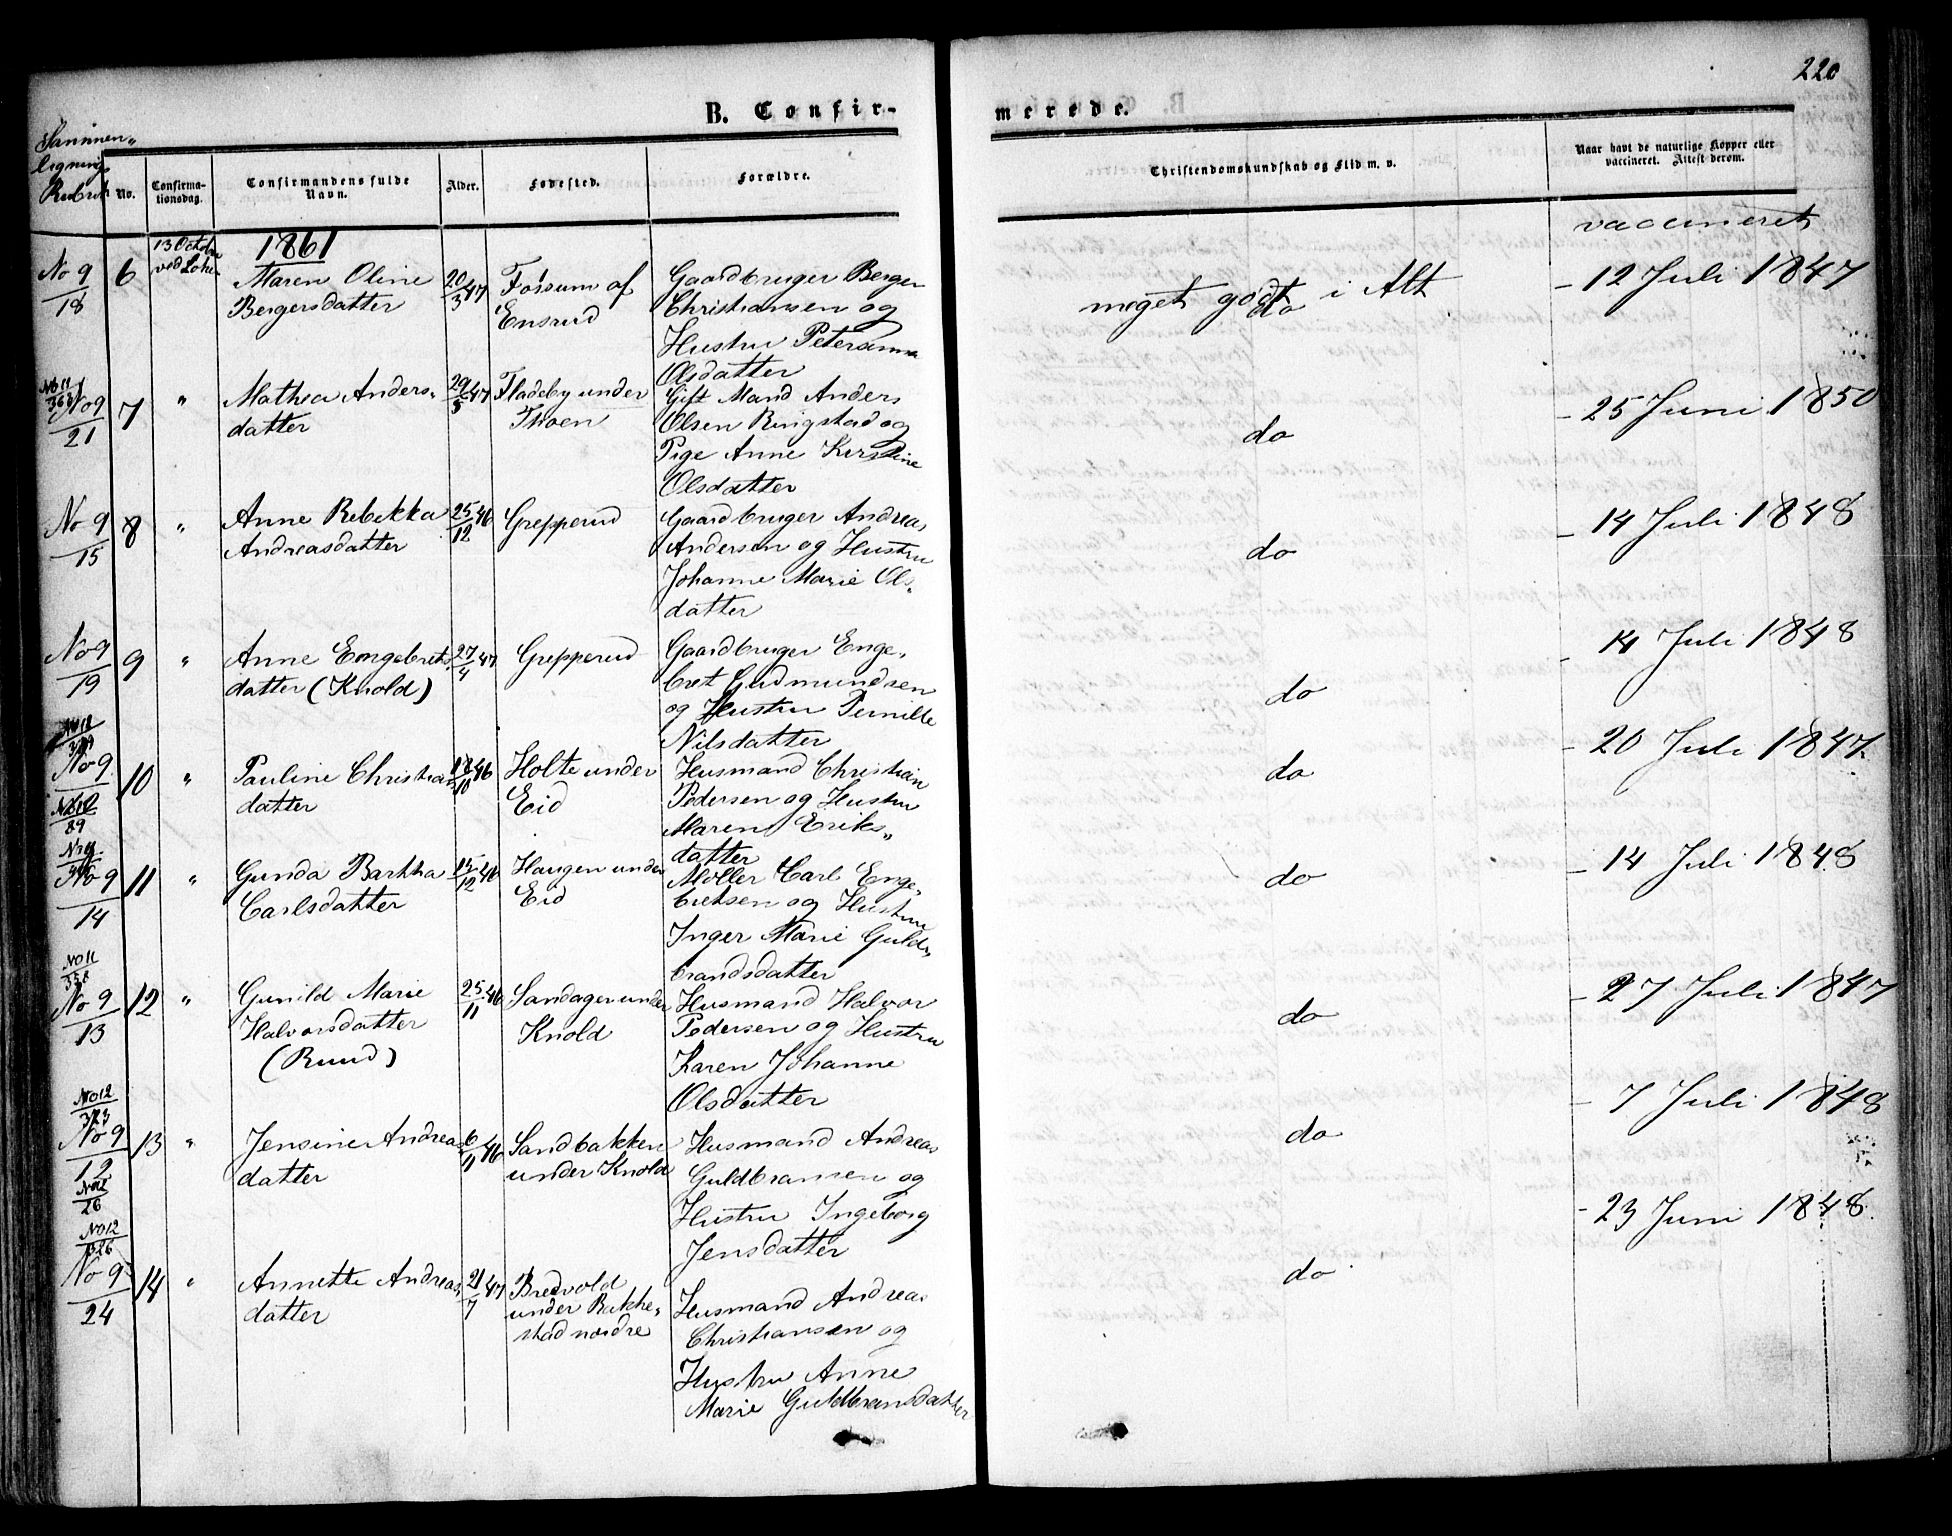 220
B. Confir-
merede.
Sammen-
lignings
Rubrik
No.
Confirma-
tionsdag.
Confirmandens fulde
Navn.
Alder.
Fødested.
Forældre.
Christendomskundskab og Flid m. v.
Naar havt de naturlige Kopper eller
vaccineret. Attest derom.
13 October
1861
vaccineret
No 9
18
6
Maren Oline
Bergersdatter
20/3 47
Forsum af
Ensrud
Gaardbruger Berger
Christiansen og
Hustru Petersenna
Olsdatter
meget godt i Alt
do
- 12 Juli 1847
No 11
No 9
21
7
"
Mathea Anders-
datter
29/5 47
Fladeby under
Gift Mand Anders
Olsen Ringstad og
Pige Anne Kerstine
Olsdatter
do
- 25 Juni 1850
No 9
15
8
"
Anne Rebekka
Andreasdatter
25/12 46
Grepperud
Gaardbruger Andreas
Andersen og Hustru
Johanne Marie Ols-
datter
do
- 14 Juli 1848
No 9
19
9
"
Anne Engebrets-
datter (Knold)
27/4 47
Grepperud
Gaardbruger Enge-
bret Gudmundsen
og Hustru Pernille
Nilsdatter
do
- 14 Juli 1848
No 12
No 9
89
10
"
Pauline Christians
datter
46
Holte under
Eid
Husmand Christian
Pedersen og Hustru
Maren Eriks-
datter
do
- 20 Juli 1847
No 9
14
11
"
Gunda Bartha
Carlsdatter
15/12 46
Haugen under
Eid
Møller Carl Enge-
bretsen og Hustru
Inger Marie Guld-
brandsdatter
do
- 14 Juli 1848
No 11
358
No 9
13
12
"
Gunild Marie
Halvorsdatter
(Ruud)
25/11 46
Sandager under
Knold
Husmand Halvor
Pedersen og Hustru
Karen Johanne
Olsdatter
do
- 27 Juli 1847
No 12
323
No 9
12
No 12
26
13
"
Jensine Andreas
datter
6/11 46
Sandbakken
under Knold
Husmand Andreas
Guldbransen og
Hustru Ingeborg
Jensdatter
do
- 7 Juli 1848
No 12
326
No 9
24
14
"
Annette Andreas
datter
21/7 47
Bredvold
under Bakke-
stad nordre
Husmand Andreas
Christiansen og
Hustru Anne
Marie Guldbransdatter
do
- 23 Juni 1848